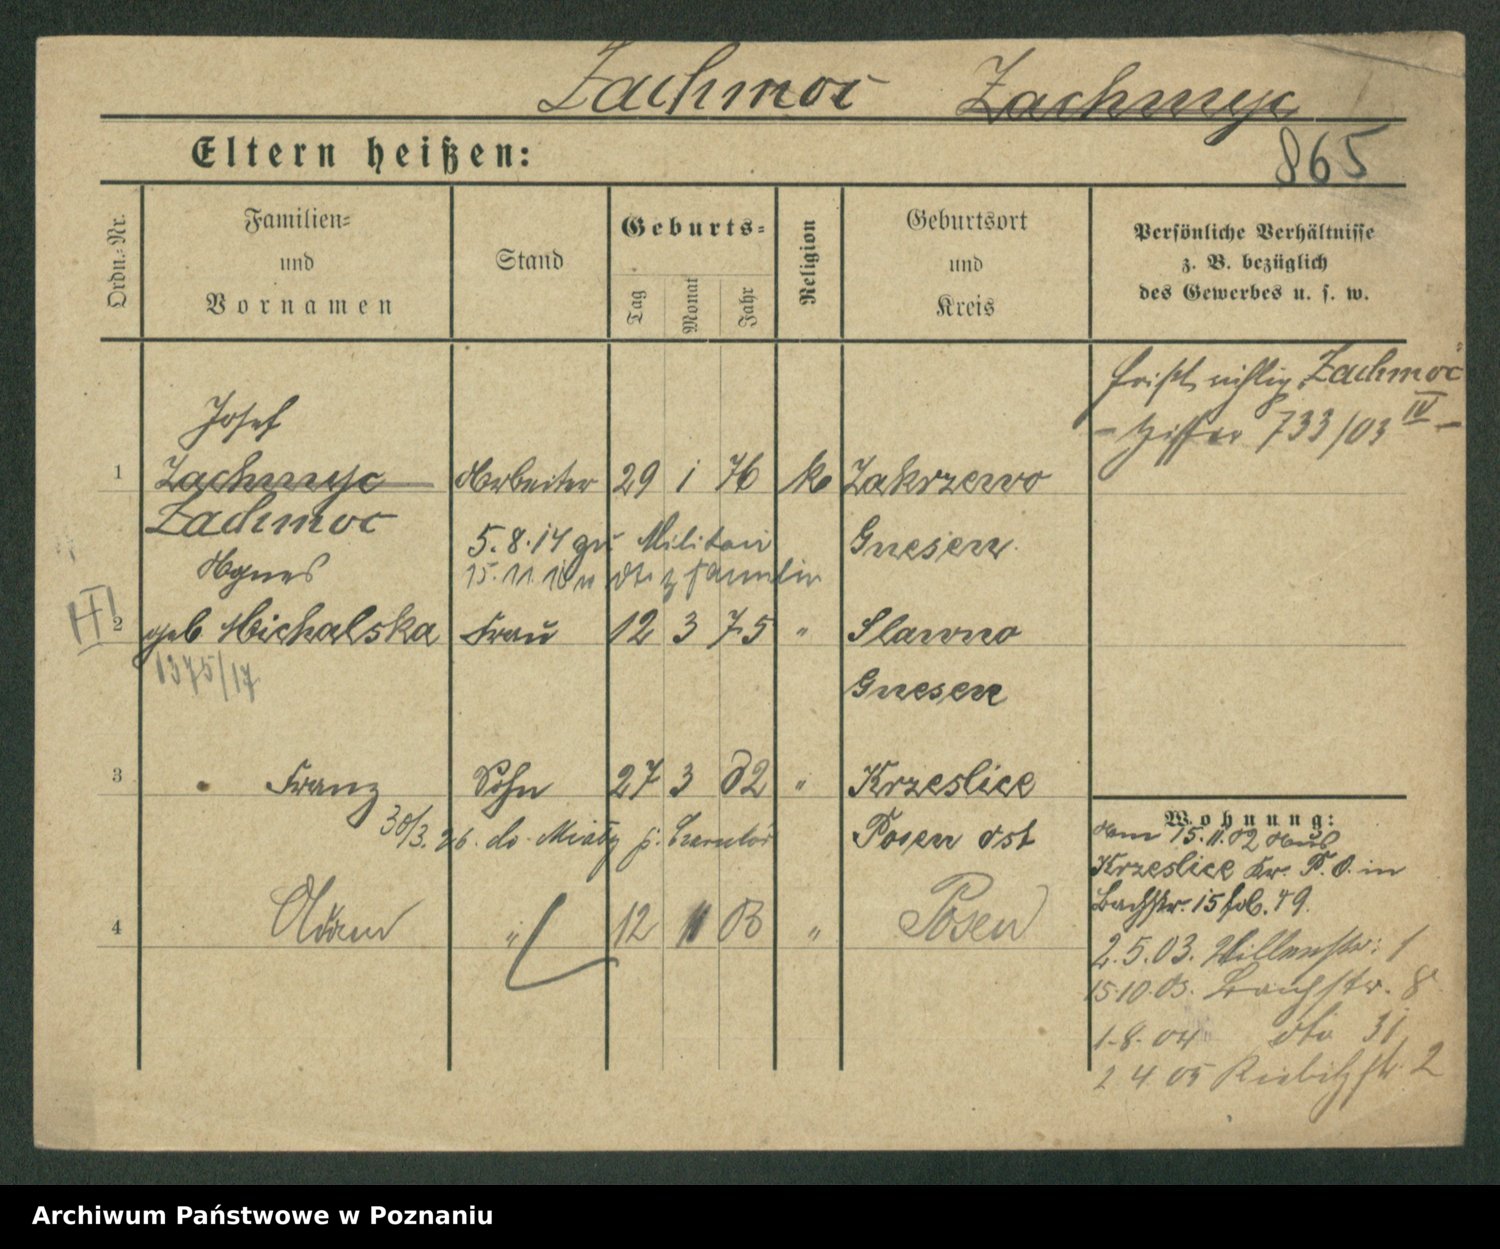 Zachmoc Zachmyc
865
Eltern heißen:
Ordn.-Nr.
Familien-
und
Vornamen
Stand
Geburts-
Tag
Monat
Jahr
Religion
Geburtsort
und
Kreis
Persönliche Verhältnisse
z. B. bezüglich
des Gewerbes u. s. w.
heißt richtig Zachmoć
- Ziffer 733/03 IV -
Josef
1 Zachmyc Arbeiter 29 1 76 k. Zakrzewo
Zachmoc
5.8.14 zu Militair Gnesen
Agnes 15.11.18 z Familie
III
2 geb Michalska Frau 12 3 75 " Slawno
1375/17
Gnesen
3 " Franz Sohn 27 3 02 " Krzeslice
30/3. 26. do Miały p. Czarnków Posen Ost
4 Adam " 12 11 03 " Posen
Wohnung:
Am 15.11.02 aus
Krzeslice Kr. P. O. in
Bachstr. 15 fol. 49.
2.5.03. 1
15.10.03. Bachstr. 8
1.8.04 dto 31
2 4 05 Kiebitzstr. 2
Archiwum Państwowe w Poznaniu